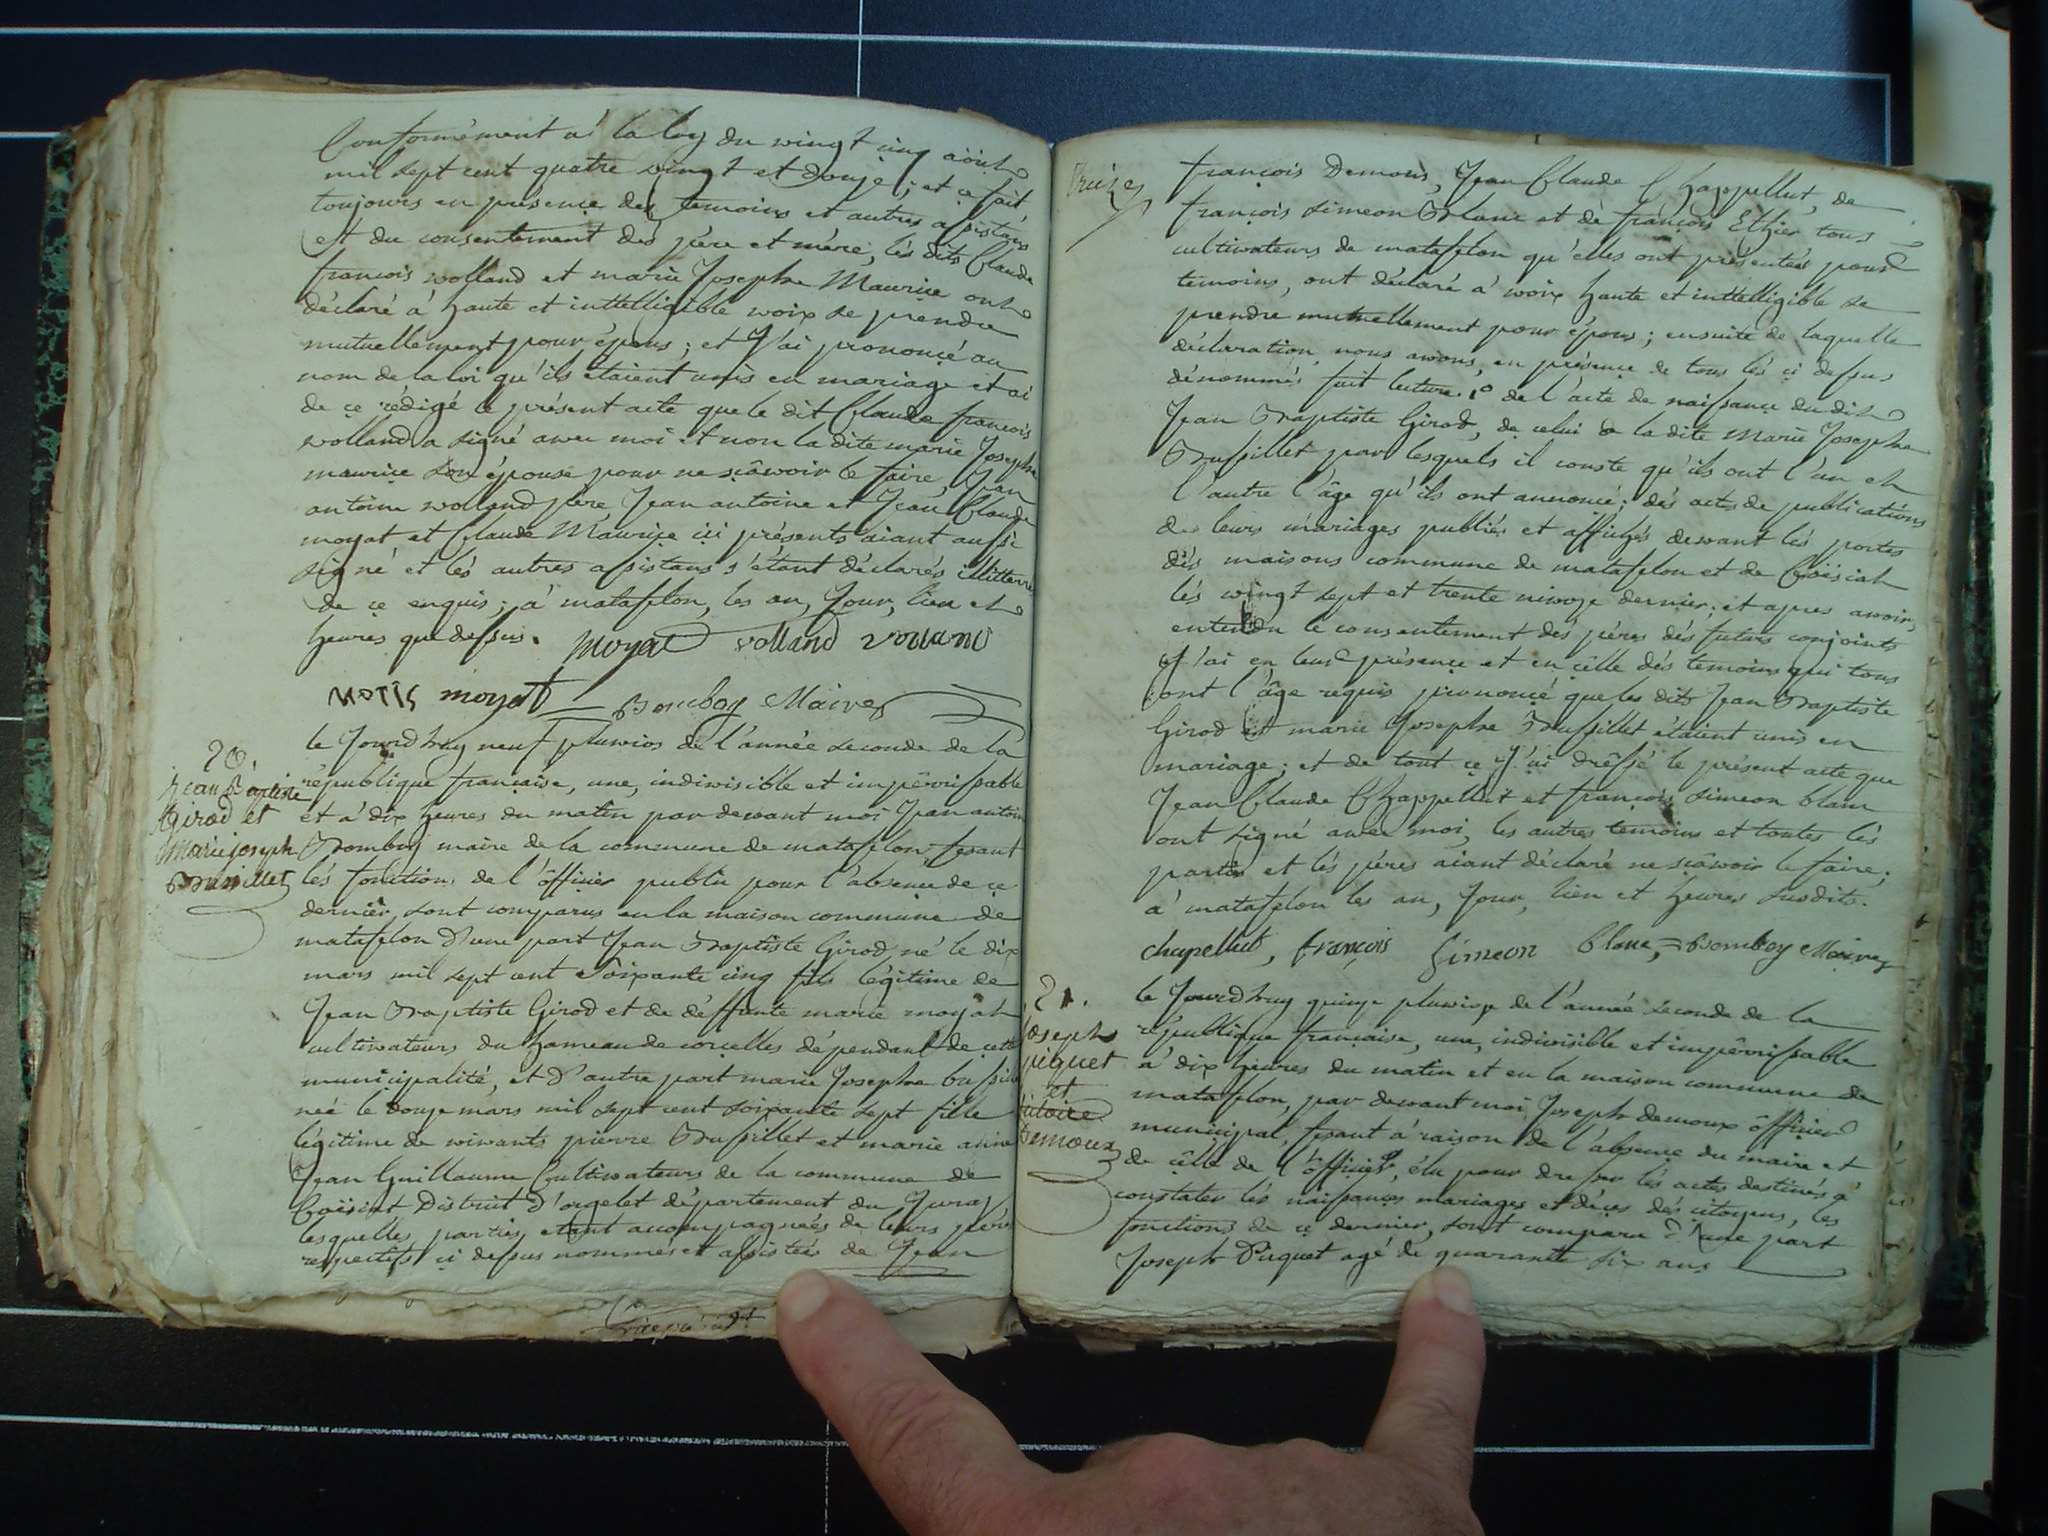 Conformément a' la loy du vingt cinq août
mil sept cent quatre vingt et douze; et ce fait
toujours en présence des temoins et autres assistans
et du consentement dés pére et mére, lés dits Claude
françois volland et marie Josephe Maurice ont
déclaré à haute et inttelligible voix se prendre
mutuellement pour épous; et J'ai prononcé au
nom de la loi qu'ils étaient unis en mariage et ai
de ce rédigé le présent acte que le dit Claude françois
volland a signé avec moi et non la dite marie Josephe
maurice son épouse pour ne sçâvoir le faire, Jean
antoine volland pére, Jean antoine et Jean Claude
moyat et Claude Maurice ici présents aiant aussi
signé et lés autres assistans s'étant déclarés illitterés
de ce enquis; à matafelon, les an, Jour, lieu et
heures que dessus. moyat volland volland
moyat Bomboy Maire
20
jean Baptiste
Girod et
Marie joseph
Bussillet
le Jourdhuy neuf pluvios de l'année seconde de la
république française, une, indivisible et impérrissable
et à dix heures du matin par devant moi Jean antoine
Bomboy maire de la commune de matafelon, fesant
lés fonctions de l'ôfficier public pour l'absence de ce
dernier, sont comparus en la maison commune de
matafelon d'une part Jean Baptiste Girod, né le dix
mars mil sept cent soixante cinq fils légitime de
Jean Baptiste Girod et de déffunte marie moyat
cultivateurs du hameau de corcelles dépendant de cette
municipalité, et d'autre part marie Josephe bussillet
née le douze mars mil sept cent soixante sept fille
légitime de vivants pierre Bussillet et marie anne
Jean Guillaume Cultivateurs de la commune de
Coïsiat District d'orgelet département du Jura,
lesquelles parties étant accompagneés de leurs péres
respectifs ci dessus nommés et assisteés de Jean
treize
françois Demons, Jean Claude Chappellut, de
françois simeon Blanc et de françois Ethier tous
cultivateurs de matafelon qu'elles ont présentés pour
temoins, ont déclaré à voix haute et inttelligible se
prendre mutuellement pour épous; ensuite de laquelle
déclaration, nous avons, en présence de tous lés ci dessus
dénommés fait lecture 1º de l'acte de naissance du dit
Jean Baptiste Girod, de celui de la dite Marie Josephe
Bussillet par lesquels il conste qu'ils ont l'un et
l'autre l'âge qu'ils ont annoncé; dés actes de publications
de leurs mariages publiés et affichés devant lés portes
dés maisons commune de matafelon et de Coïsiat
lés vingt sept et trente nivoze dernier; et apres avoir
entendu le consentement dés péres dés futurs conjoints
J'ai en leur présence et en çélle dés temoins qui tous
ont l'âge requis prononcé que les dits Jean Baptiste
Girod et marie Josephe Bussillet étaient unis en
mariage; et de tout ce J'ai dréssé le présent acte que
Jean Claude Chappellut et françois simeon blanc
ont signé avec moi, les autres temoins et toutes lés
parties et lés péres aiant déclaré ne sçâvoir le faire;
à matafelon les an, Jour, lieu et heures susdits.
chapellut, françois simeon blanc, Bomboy Maire
21.
Joseph
piquet
et
victoire
Demoux
le Jourdhuy quinze pluviose de l'année seconde de la
république française, une, indivisible et impérrissable
à dix heures du matin et en la maison commune de
matafelon, par devant moi Joseph demoux ôfficier
municipal, fesant à raison de l'absence du maire et
de çélle de l'ôfficier, élu pour dresser lés actes destinés à
constater lés naissances mariages et décès dés citoyens, les
fonctions de ce dernier, sont comparu d'une part
Joseph Piquet agé de quarante six ans